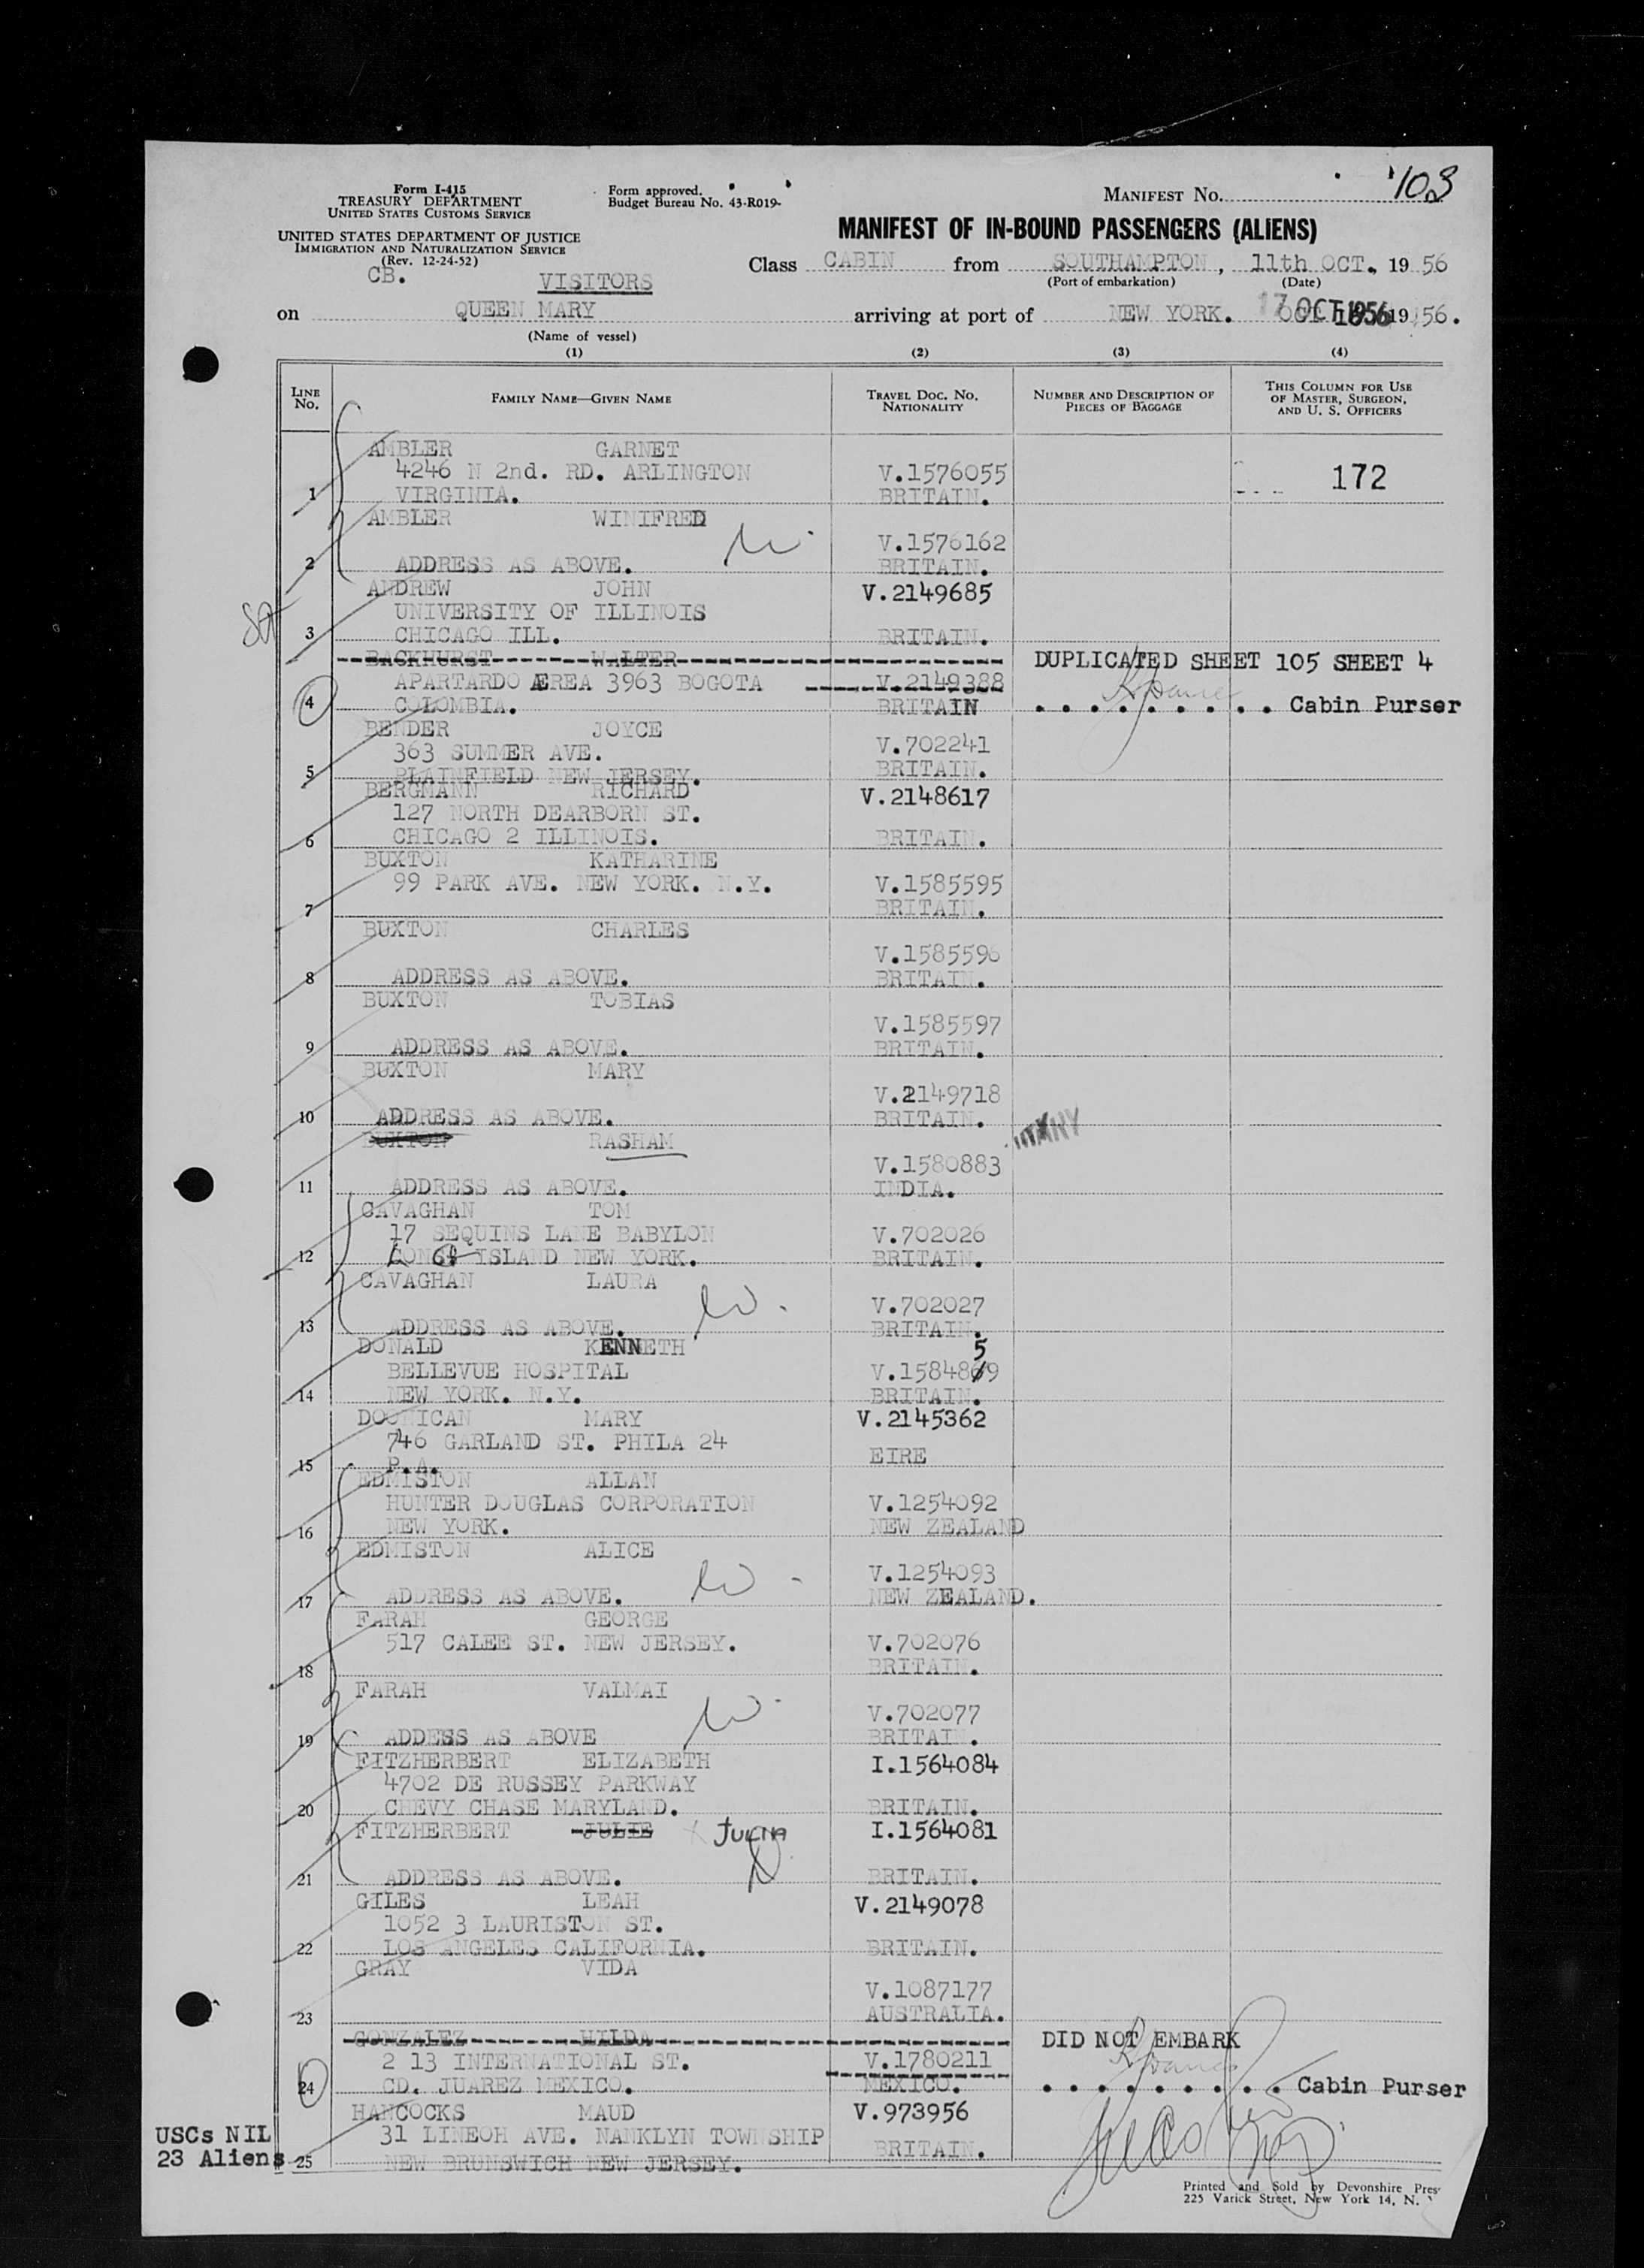 Form I-415
TREASURY DEPARTMENT
UNITED STATES CUSTOMS SERVICE
UNITED STATES DEPARTMENT OF JUSTICE
IMMIGRATION AND NATURALIZATION SERVICE
(Rev. 12-24-52)
Form approved.
Budget Bureau No. 43-R019-
MANIFEST No. 103
MANIFEST OF IN-BOUND PASSENGERS (ALIENS)
CB. VISITORS
Class CABIN from SOUTHAMPTON, 11th OCT. 1956
(Port of embarkation) (Date)
on QUEEN MARY arriving at port of NEW YORK. 17 OCT 1956 1956.
(Name of vessel)
(1) (2) (3) (4)
LINE No. FAMILY NAME—GIVEN NAME TRAVEL DOC. NO. NATIONALITY NUMBER AND DESCRIPTION OF PIECES OF BAGGAGE THIS COLUMN FOR USE OF MASTER, SURGEON, AND U. S. OFFICERS
AMBLER GARNET
4246 N 2nd. RD. ARLINGTON V.1576055 172
1 VIRGINIA. BRITAIN.
AMBLER WINIFRED
V.1576162
2 ADDRESS AS ABOVE. BRITAIN.
ANDREW JOHN V.2149685
UNIVERSITY OF ILLINOIS
3 CHICAGO ILL. BRITAIN.
BACKHURST WALTER DUPLICATED SHEET 105 SHEET 4
APARTARDO ÆREA 3963 BOGOTA V.2149388
4 COLOMBIA. BRITAIN . . . . . . . . . . Cabin Purser
BENDER JOYCE
363 SUMMER AVE. V.702241
5 PLAINFIELD NEW JERSEY. BRITAIN.
BERGMANN RICHARD V.2148617
127 NORTH DEARBORN ST.
6 CHICAGO 2 ILLINOIS. BRITAIN.
BUXTON KATHARINE
99 PARK AVE. NEW YORK. N.Y. V.1585595
7 BRITAIN.
BUXTON CHARLES
V.1585596
8 ADDRESS AS ABOVE. BRITAIN.
BUXTON TOBIAS
V.1585597
9 ADDRESS AS ABOVE. BRITAIN.
BUXTON MARY
V.2149718
10 ADDRESS AS ABOVE. BRITAIN.
BUXTON RASHAM
V.1580883
11 ADDRESS AS ABOVE. INDIA.
CAVAGHAN TOM
17 SEQUINS LANE BABYLON V.702026
12 LONG ISLAND NEW YORK. BRITAIN.
CAVAGHAN LAURA
V.702027
13 ADDRESS AS ABOVE. BRITAIN.
DONALD KENNETH 5
BELLEVUE HOSPITAL V.1584869
14 NEW YORK. N.Y. BRITAIN.
DOONICAN MARY V.2145362
746 GARLAND ST. PHILA 24
15 P.A. EIRE
EDMISTON ALLAN
HUNTER DOUGLAS CORPORATION V.1254092
16 NEW YORK. NEW ZEALAND
EDMISTON ALICE
V.1254093
17 ADDRESS AS ABOVE. NEW ZEALAND.
FARAH GEORGE
517 CALEE ST. NEW JERSEY. V.702076
18 BRITAIN.
FARAH VALMAI
V.702077
19 ADDESS AS ABOVE BRITAIN.
FITZHERBERT ELIZABETH I.1564084
4702 DE RUSSEY PARKWAY
20 CHEVY CHASE MARYLAND. BRITAIN.
FITZHERBERT JULIE JULIA I.1564081
21 ADDRESS AS ABOVE. BRITAIN.
GILES LEAH V.2149078
1052 3 LAURISTON ST.
22 LOS ANGELES CALIFORNIA. BRITAIN.
GRAY VIDA
V.1087177
23 AUSTRALIA.
GONZALEZ HILDA DID NOT EMBARK
2 13 INTERNATIONAL ST. V.1780211
24 CD. JUAREZ MEXICO. MEXICO. . . . . . . . . . . Cabin Purser
HANCOCKS MAUD V.973956
31 LINEOH AVE. NANKLYN TOWNSHIP
25 NEW BRUNSWICH NEW JERSEY. BRITAIN.
USCs NIL
23 Aliens
Printed and Sold by Devonshire Pres
225 Varick Street, New York 14, N.